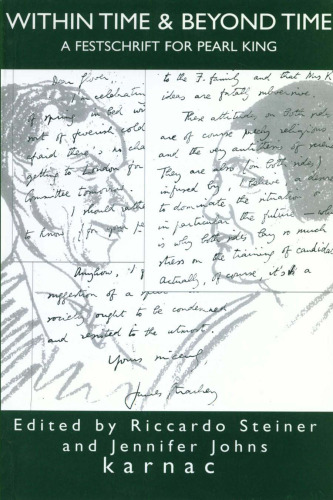 WITHIN TIME & BEYOND TIME
A FESTSCHRIFT FOR PEARL KING
Dear Glover:
I'm celebrating
of spring in bed
sort of feverish cold
afraid there's no
getting to London for
Committee tomorrow
I should
to know (for your
Anyhow,
suggestion of a
society ought to be condemned
and resisted to the utmost.
Yours sincerely,
James Strachey
to the F. family and that Mrs K
ideas are fatally subversive.
These attitudes on both sides
are of course purely religious
and the very antithesis of
They are also (on both sides)
infused by, I believe a desire
to dominate the situation
in particular the future
is why both sides lay so much
stress on the training of candidates
Actually, of course, it's a
Edited by Riccardo Steiner
and Jennifer Johns
karnac